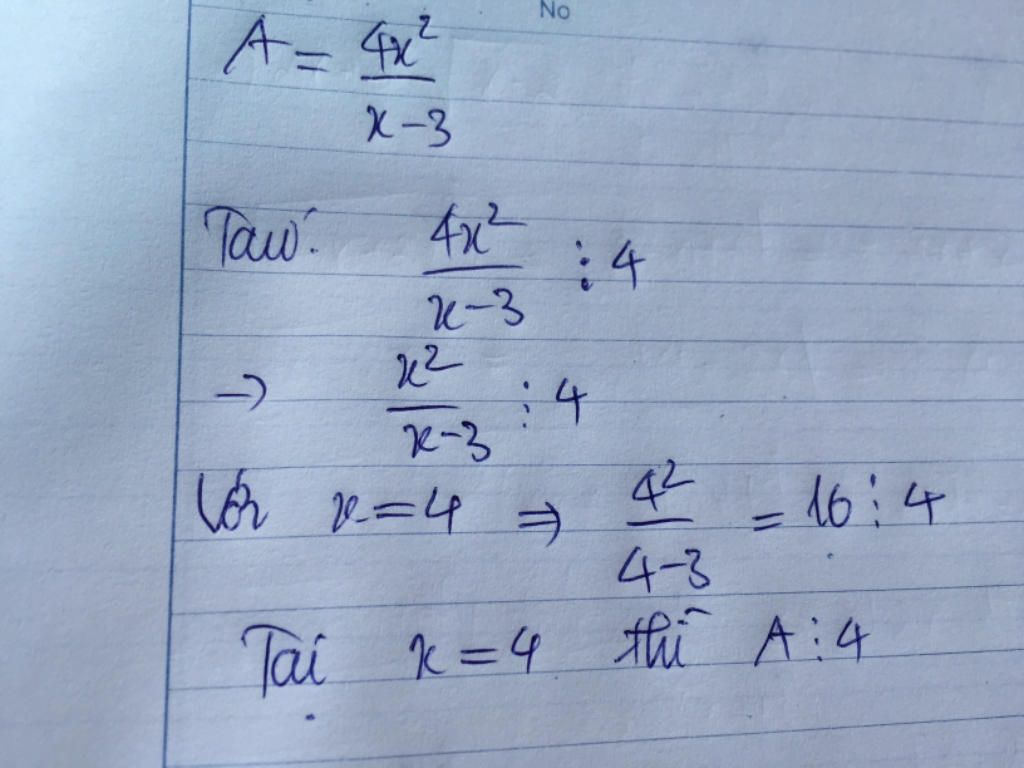 No
A = \frac{4x^2}{x-3}
\frac{4x^2}{x-3} ⋮ 4
→ \frac{x^2}{x-3} ⋮ 4
Với x = 4 ⇒ \frac{4^2}{4-3} = 16 ⋮ 4
Tại x = 4 thì A ⋮ 4